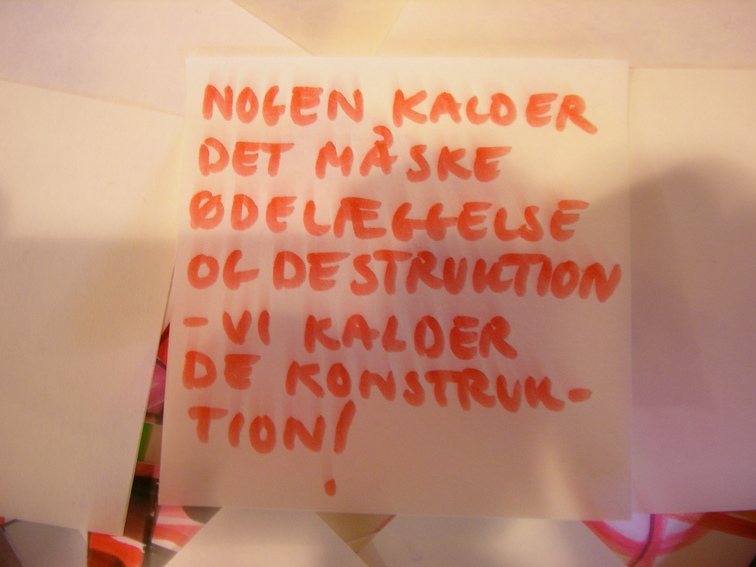 NOGEN KALDER
DET MÅSKE
ØDELÆGGELSE
OG DESTRUKTION
- VI KALDER
DE KONSTRUK-
TION!